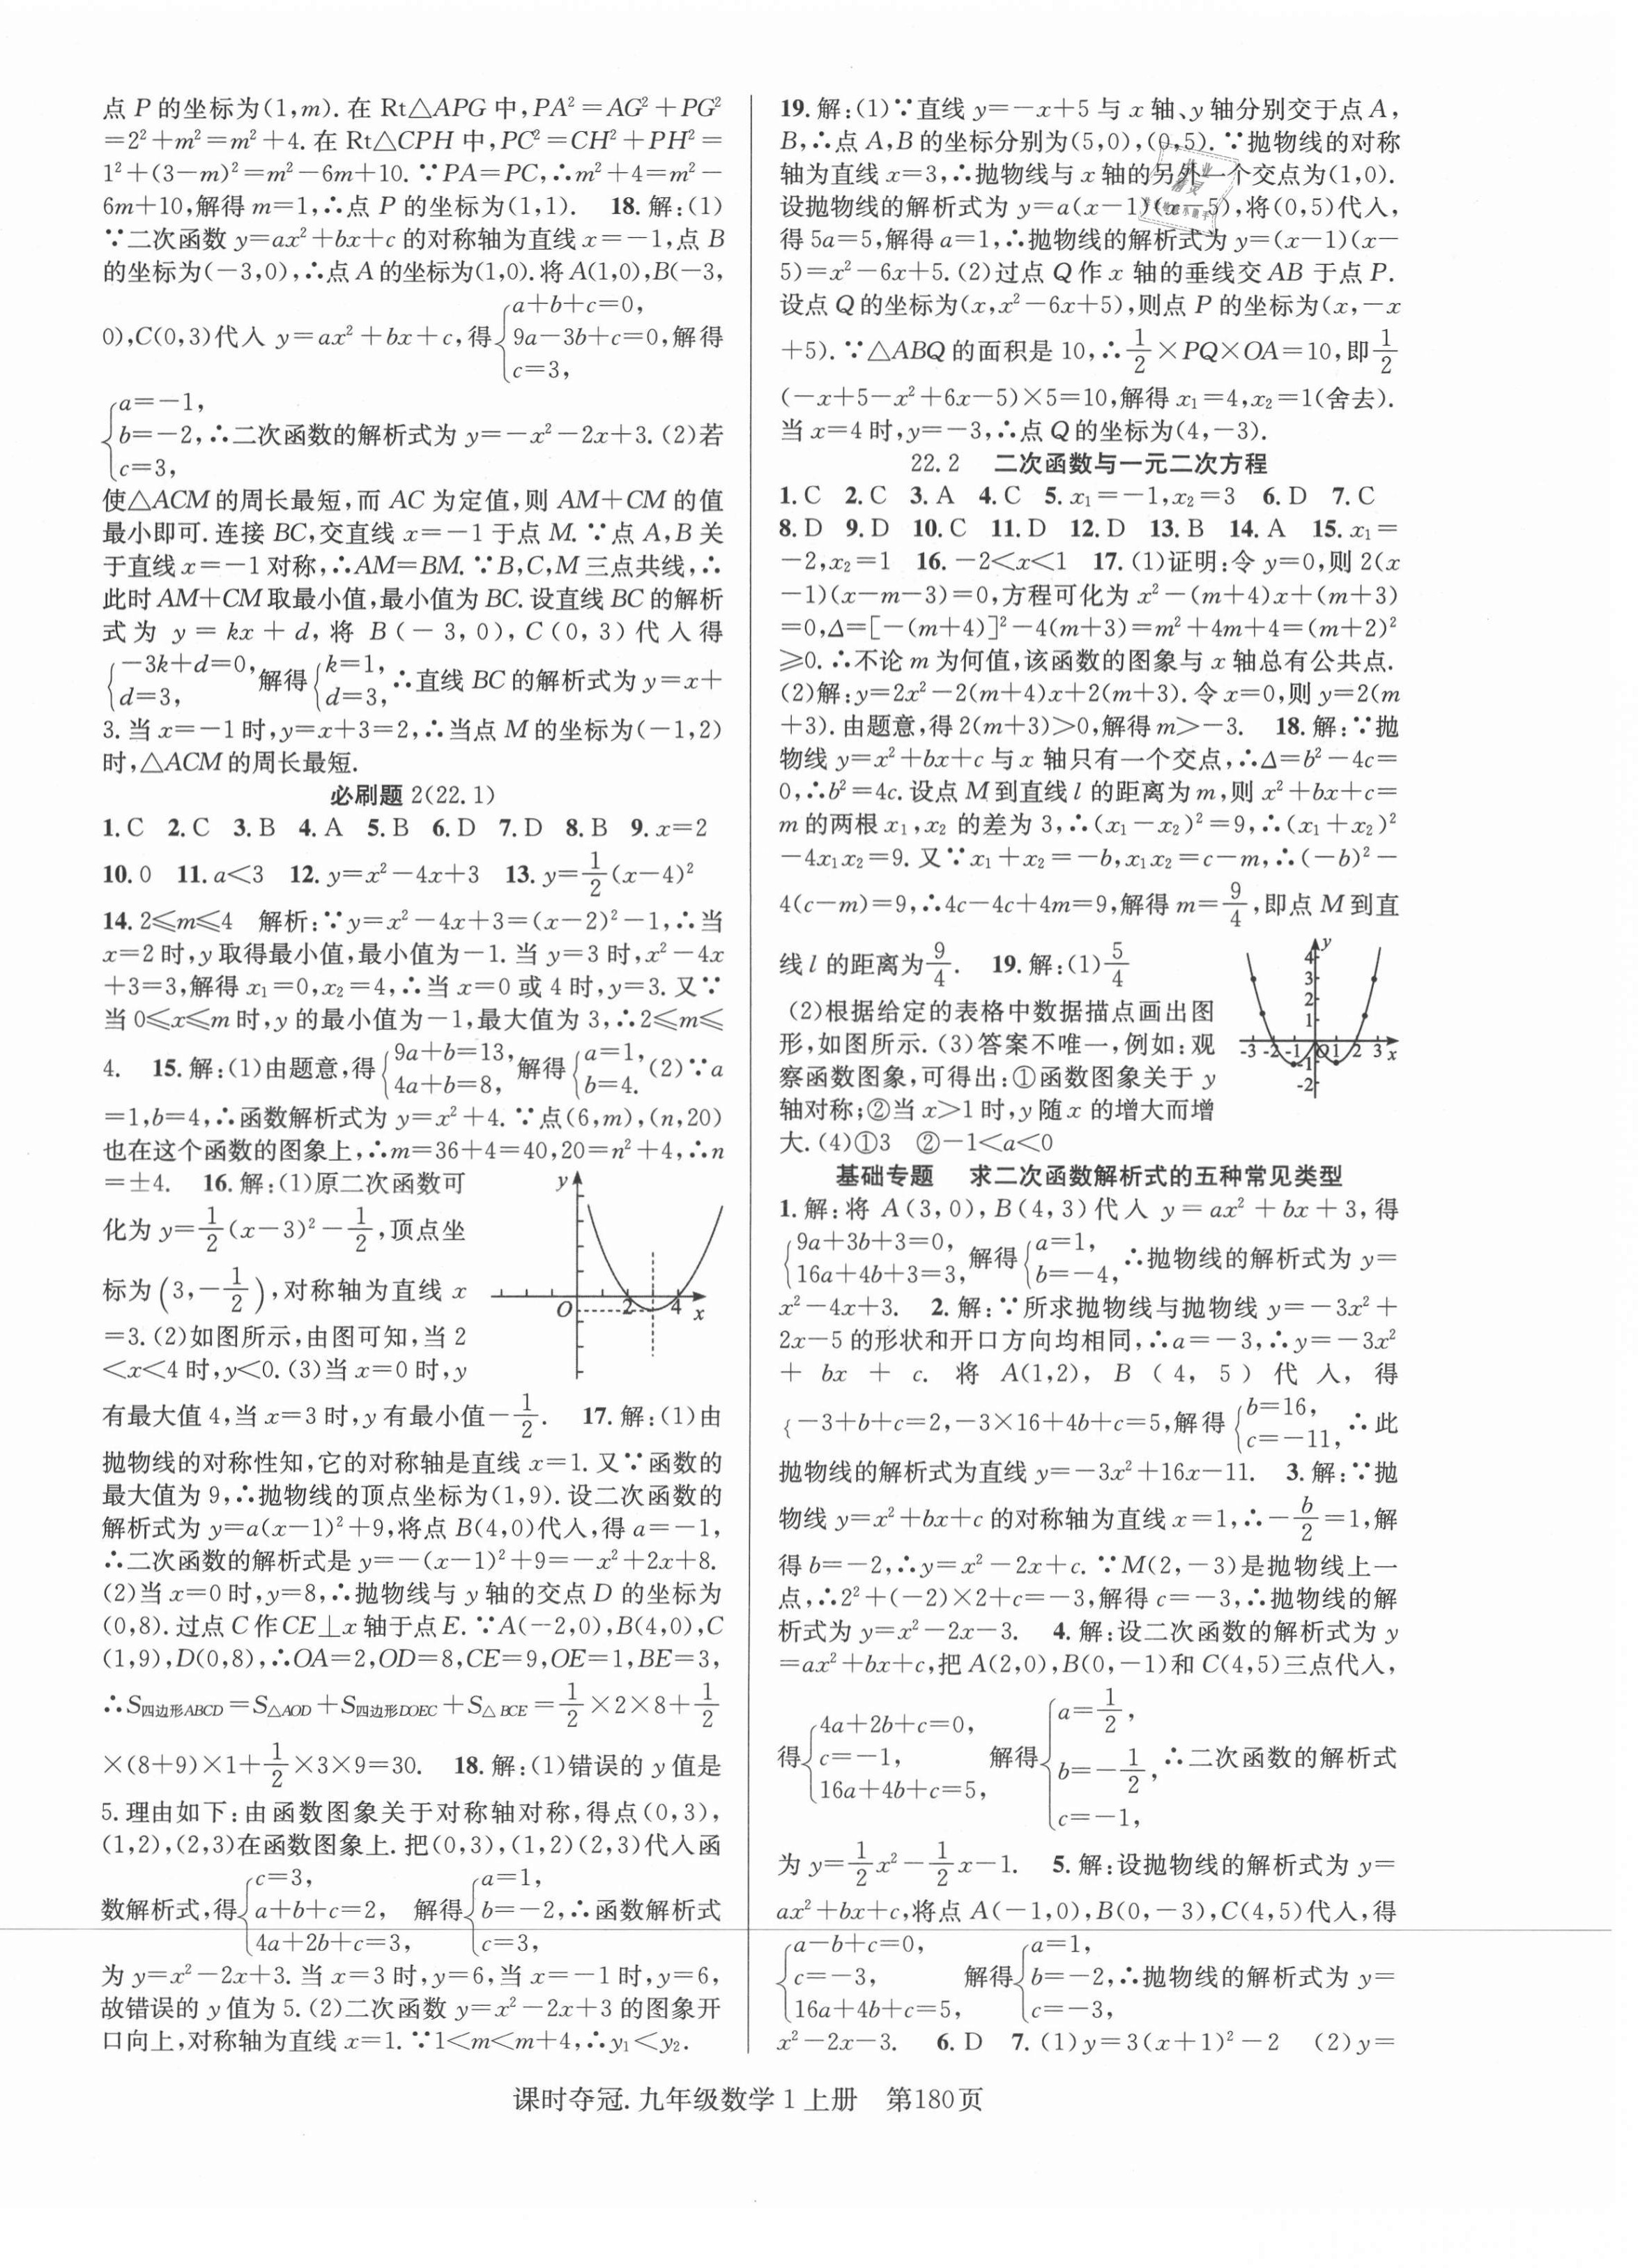 点 P 的坐标为(1,m). 在 Rt△APG 中,PA²=AG²+PG²
=2²+m²=m²+4. 在 Rt△CPH 中,PC²=CH²+PH²=
1²+(3-m)²=m²-6m+10. ∵PA=PC,∴m²+4=m²-
6m+10,解得 m=1,∴点 P 的坐标为(1,1). 18. 解:(1)
∵二次函数 y=ax²+bx+c 的对称轴为直线 x=-1,点 B
的坐标为(-3,0),∴点 A 的坐标为(1,0). 将 A(1,0),B(-3,
0),C(0,3)代入 y=ax²+bx+c,得{a+b+c=0, 9a-3b+c=0, c=3,解得
{a=-1, b=-2, c=3,∴二次函数的解析式为 y=-x²-2x+3. (2)若
使△ACM 的周长最短,而 AC 为定值,则 AM+CM 的值
最小即可. 连接 BC,交直线 x=-1 于点 M. ∵点 A,B 关
于直线 x=-1 对称,∴AM=BM. ∵B,C,M 三点共线,∴
此时 AM+CM 取最小值,最小值为 BC. 设直线 BC 的解析
式为 y=kx+d,将 B(-3,0),C(0,3)代入得
{-3k+d=0, d=3,解得{k=1, d=3,∴直线 BC 的解析式为 y=x+
3. 当 x=-1 时,y=x+3=2,∴当点 M 的坐标为(-1,2)
时,△ACM 的周长最短.
必刷题 2(22.1)
1. C 2. C 3. B 4. A 5. B 6. D 7. D 8. B 9. x=2
10. 0 11. a<3 12. y=x²-4x+3 13. y=1/2(x-4)²
14. 2≤m≤4 解析:∵y=x²-4x+3=(x-2)²-1,∴当
x=2 时,y 取得最小值,最小值为-1. 当 y=3 时,x²-4x
+3=3,解得 x₁=0,x₂=4,∴当 x=0 或 4 时,y=3. 又∵
当 0≤x≤m 时,y 的最小值为-1,最大值为 3,∴2≤m≤
4. 15. 解:(1)由题意,得{9a+b=13, 4a+b=8,解得{a=1, b=4. (2)∵a
=1,b=4,∴函数解析式为 y=x²+4. ∵点(6,m),(n,20)
也在这个函数的图象上,∴m=36+4=40,20=n²+4,∴n
=±4. 16. 解:(1)原二次函数可
化为 y=1/2(x-3)²-1/2,顶点坐
标为(3,-1/2),对称轴为直线 x
=3. (2)如图所示,由图可知,当 2
<x<4 时,y<0. (3)当 x=0 时,y
y
O 2 4 x
有最大值 4,当 x=3 时,y 有最小值-1/2. 17. 解:(1)由
抛物线的对称性知,它的对称轴是直线 x=1. 又∵函数的
最大值为 9,∴抛物线的顶点坐标为(1,9). 设二次函数的
解析式为 y=a(x-1)²+9,将点 B(4,0)代入,得 a=-1,
∴二次函数的解析式是 y=-(x-1)²+9=-x²+2x+8.
(2)当 x=0 时,y=8,∴抛物线与 y 轴的交点 D 的坐标为
(0,8). 过点 C 作 CE⊥x 轴于点 E. ∵A(-2,0),B(4,0),C
(1,9),D(0,8),∴OA=2,OD=8,CE=9,OE=1,BE=3,
∴S四边形ABCD=S△AOD+S四边形DOEC+S△BCE=1/2×2×8+1/2
×(8+9)×1+1/2×3×9=30. 18. 解:(1)错误的 y 值是
5. 理由如下:由函数图象关于对称轴对称,得点(0,3),
(1,2),(2,3)在函数图象上. 把(0,3),(1,2)(2,3)代入函
数解析式,得{c=3, a+b+c=2, 4a+2b+c=3,解得{a=1, b=-2, c=3,∴函数解析式
为 y=x²-2x+3. 当 x=3 时,y=6,当 x=-1 时,y=6,
故错误的 y 值为 5. (2)二次函数 y=x²-2x+3 的图象开
口向上,对称轴为直线 x=1. ∵1<m<m+4,∴y₁<y₂.
19. 解:(1)∵直线 y=-x+5 与 x 轴、y 轴分别交于点 A,
B,∴点 A,B 的坐标分别为(5,0),(0,5). ∵抛物线的对称
轴为直线 x=3,∴抛物线与 x 轴的另外一个交点为(1,0).
设抛物线的解析式为 y=a(x-1)(x-5),将(0,5)代入,
得 5a=5,解得 a=1,∴抛物线的解析式为 y=(x-1)(x-
5)=x²-6x+5. (2)过点 Q 作 x 轴的垂线交 AB 于点 P.
设点 Q 的坐标为(x,x²-6x+5),则点 P 的坐标为(x,-x
+5). ∵△ABQ 的面积是 10,∴1/2×PQ×OA=10,即1/2
(-x+5-x²+6x-5)×5=10,解得 x₁=4,x₂=1(舍去).
当 x=4 时,y=-3,∴点 Q 的坐标为(4,-3).
22.2 二次函数与一元二次方程
1. C 2. C 3. A 4. C 5. x₁=-1,x₂=3 6. D 7. C
8. D 9. D 10. C 11. D 12. D 13. B 14. A 15. x₁=
-2,x₂=1 16. -2<x<1 17. (1)证明:令 y=0,则 2(x
-1)(x-m-3)=0,方程可化为 x²-(m+4)x+(m+3)
=0,Δ=[-(m+4)]²-4(m+3)=m²+4m+4=(m+2)²
≥0. ∴不论 m 为何值,该函数的图象与 x 轴总有公共点.
(2)解:y=2x²-2(m+4)x+2(m+3). 令 x=0,则 y=2(m
+3). 由题意,得 2(m+3)>0,解得 m>-3. 18. 解:∵抛
物线 y=x²+bx+c 与 x 轴只有一个交点,∴Δ=b²-4c=
0,∴b²=4c. 设点 M 到直线 l 的距离为 m,则 x²+bx+c=
m 的两根 x₁,x₂ 的差为 3,∴(x₁-x₂)²=9,∴(x₁+x₂)²
-4x₁x₂=9. 又∵x₁+x₂=-b,x₁x₂=c-m,∴(-b)²-
4(c-m)=9,∴4c-4c+4m=9,解得 m=9/4,即点 M 到直
线 l 的距离为9/4. 19. 解:(1)5/4
(2)根据给定的表格中数据描点画出图
形,如图所示. (3)答案不唯一,例如:观
察函数图象,可得出:①函数图象关于 y
轴对称;②当 x>1 时,y 随 x 的增大而增
大. (4)①3 ②-1<a<0
y
4
3
2
1
-3 -2 -1 O 1 2 3 x
-1
-2
基础专题 求二次函数解析式的五种常见类型
1. 解:将 A(3,0),B(4,3)代入 y=ax²+bx+3,得
{9a+3b+3=0, 16a+4b+3=3,解得{a=1, b=-4,∴抛物线的解析式为 y=
x²-4x+3. 2. 解:∵所求抛物线与抛物线 y=-3x²+
2x-5 的形状和开口方向均相同,∴a=-3,∴y=-3x²
+bx+c. 将 A(1,2),B(4,5)代入,得
{-3+b+c=2,-3×16+4b+c=5,解得{b=16, c=-11,∴此
抛物线的解析式为直线 y=-3x²+16x-11. 3. 解:∵抛
物线 y=x²+bx+c 的对称轴为直线 x=1,∴-b/2=1,解
得 b=-2,∴y=x²-2x+c. ∵M(2,-3)是抛物线上一
点,∴2²+(-2)×2+c=-3,解得 c=-3,∴抛物线的解
析式为 y=x²-2x-3. 4. 解:设二次函数的解析式为 y
=ax²+bx+c,把 A(2,0),B(0,-1)和 C(4,5)三点代入,
得{4a+2b+c=0, c=-1, 16a+4b+c=5,解得{a=1/2, b=-1/2, c=-1,∴二次函数的解析式
为 y=1/2x²-1/2x-1. 5. 解:设抛物线的解析式为 y=
ax²+bx+c,将点 A(-1,0),B(0,-3),C(4,5)代入,得
{a-b+c=0, c=-3, 16a+4b+c=5,解得{a=1, b=-2, c=-3,∴抛物线的解析式为 y=
x²-2x-3. 6. D 7. (1)y=3(x+1)²-2 (2)y=
课时夺冠. 九年级数学 1 上册 第180页